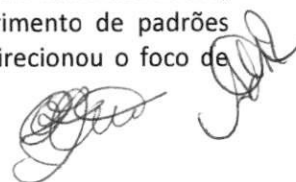 rimento de padrões
irecionou o foco de